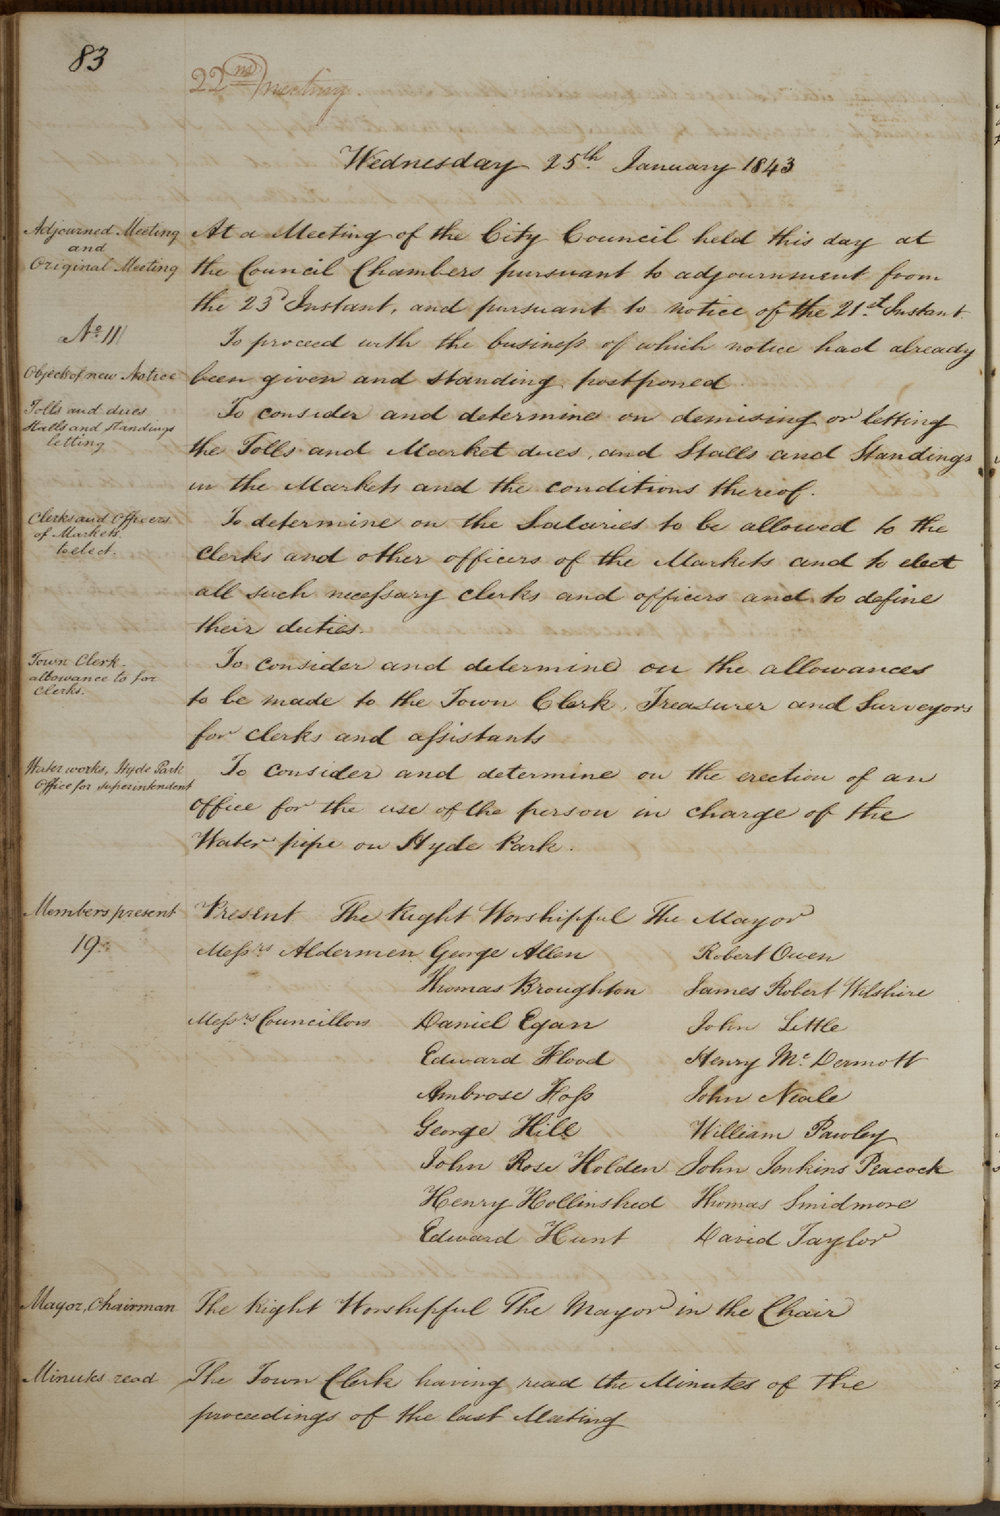 83
22nd meeting
Wednesday 25th January 1843
Adjourned Meeting
and
Original Meeting
At a Meeting of the City Council held this day at
the Council Chambers pursuant to adjournment from
the 23d Instant, and pursuant to notice of the 21st Instant
No 11
To proceed with the business of which notice had already
Objects of new Notice
been given and standing postponed.
Tolls and dues
Stalls and standings
letting
To consider and determine on demising or letting
the Tolls and Market dues, and Stalls and Standings
in the Markets and the conditions thereof.
Clerks and Officers
of Markets.
to elect.
To determine on the Salaries to be allowed to the
Clerks and other officers of the Markets and to elect
all such necessary clerks and officers and to define
their duties.
Town Clerk.
allowance to for
Clerks.
To consider and determine on the allowances
to be made to the Town Clerk, Treasurer and Surveyors
for clerks and assistants
Water works, Hyde Park
Office for superintendent
To consider and determine on the erection of an
office for the use of the person in charge of the
Water pipe on Hyde Park.
Members present
19.
Present The Right Worshipful The Mayor
Messrs Aldermen George Allen Robert Owen
Thomas Broughton James Robert Wilshire
Messrs Councillors Daniel Egan John Little
Edward Flood Henry Mc Dermott
Ambrose Foss John Neale
George Hill William Pawley
John Rose Holden John Jenkins Peacock
Henry Hollinshed Thomas Smidmore
Edward Hunt David Taylor
Mayor, Chairman
The Right Worshipful The Mayor in the Chair
Minutes read
The Town Clerk having read the Minutes of the
proceedings of the last Meeting